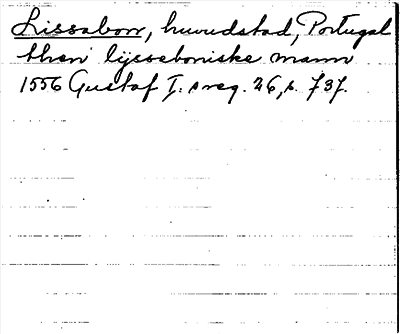 Lissabon, huvudstad, Portugal
then lÿsseboniske mann
1556 Gustaf I. s reg. 26, s. 737.